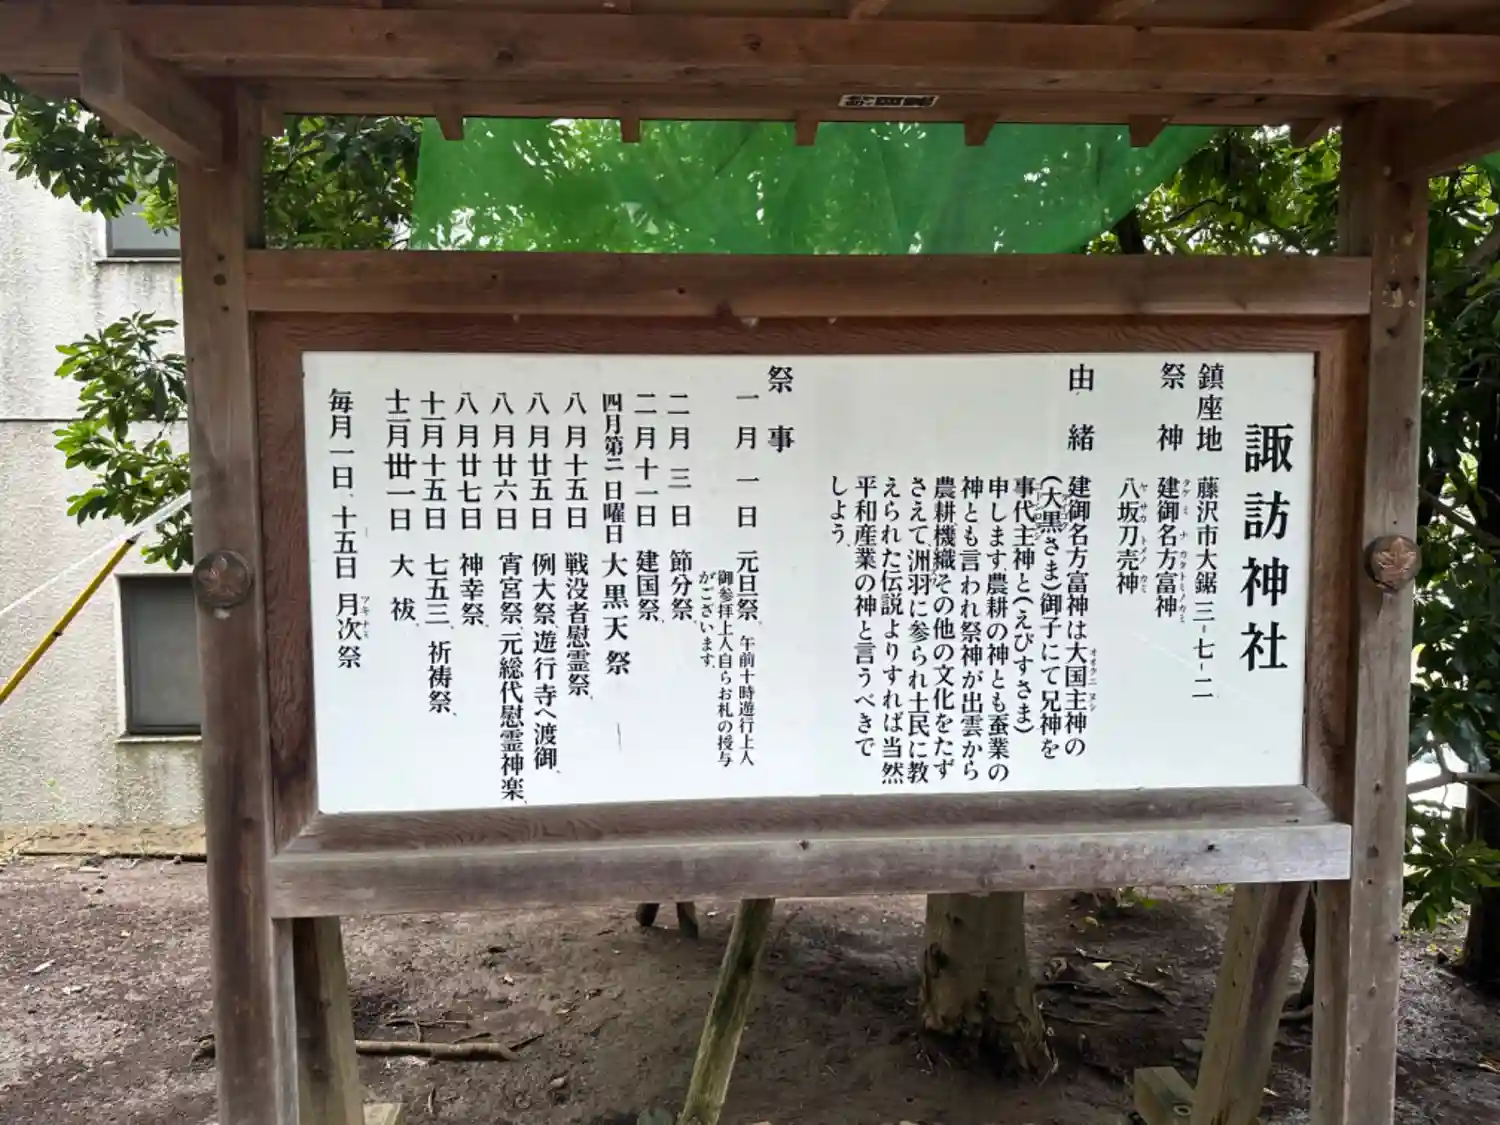 諏訪神社
鎮座地 藤沢市大鋸三-七-二
祭神 建御名方富神
八坂刀売神
由緒 建御名方富神は大国主神の
(大黒さま)御子にて兄神を
事代主神と(えびすさま)
申します。農耕の神とも蚕業の
神とも言われ祭神が出雲から
農耕機織その他の文化をたず
さえて洲羽に参られ土民に教
えられた伝説よりすれば当然
平和産業の神と言うべきで
しよう。
祭事
一月一日 元旦祭、午前十時遊行上人
御参拝上人自らお札の授与
がございます。
二月三日 節分祭、
二月十一日 建国祭、
四月第二日曜日 大黒天祭
八月十五日 戦没者慰霊祭、
八月廿五日 例大祭遊行寺へ渡御、
八月廿六日 宵宮祭、元総代慰霊神楽、
八月廿七日 神幸祭、
十一月十五日 七五三、祈祷祭、
十二月卅一日 大祓、
毎月一日、十五日 月次祭